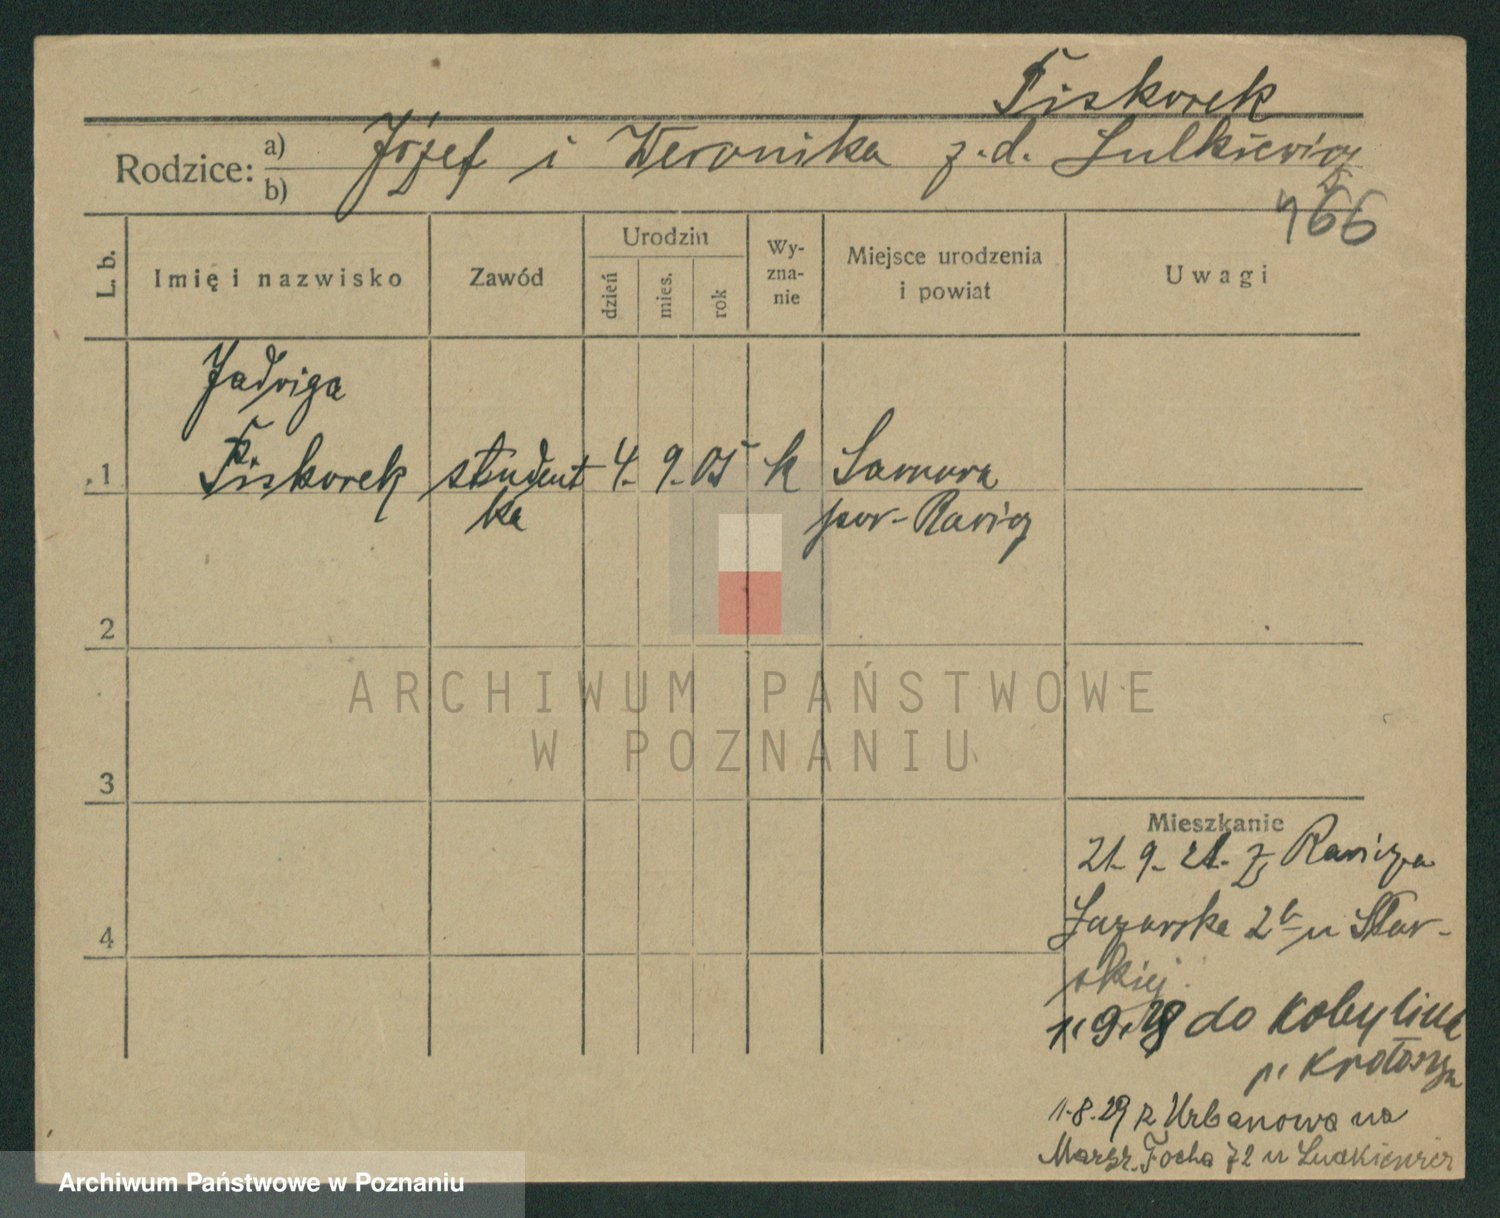 Fiskorek
Rodzice: a) Józef i Weronika z.d. Lulkiewicz
b)
466
L. b.
Imię i nazwisko
Zawód
Urodzin
dzień
mies.
rok
Wy-
zna-
nie
Miejsce urodzenia
i powiat
Uwagi
Jadwiga
1 Fiskorek student 4. 9. 05 k Sarnowa
ka pow. Rawicz
2
ARCHIWUM PAŃSTWOWE
W POZNANIU
3
Mieszkanie
21. 9. 21. z Rawicza
4 Łazarska 2b u Star-
skiej.
1. 9. 28 do Kobylina
p. Krotoszyn
1.8.29 z Urbanowa na
Marsz. Focha 72 u
Archiwum Państwowe w Poznaniu